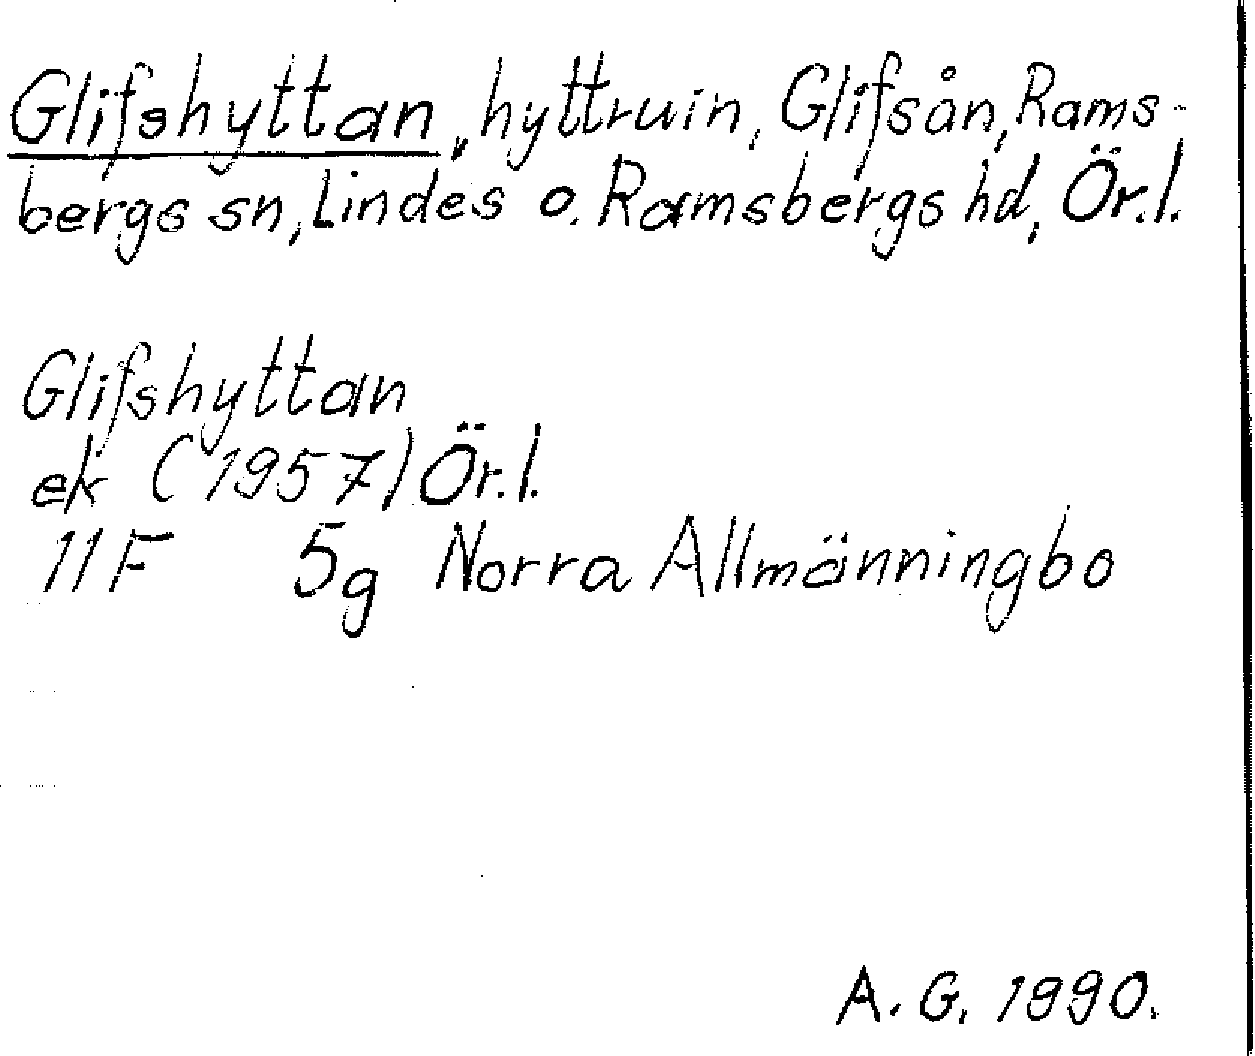 Glifshyttan, hyttruin, Glifsån, Rams-
bergs sn, Lindes o. Ramsbergs hd, Ör.l.
Glifshyttan
ek (1957) Ör.l.
11F 5g Norra Allmänningbo
A. G. 1990.